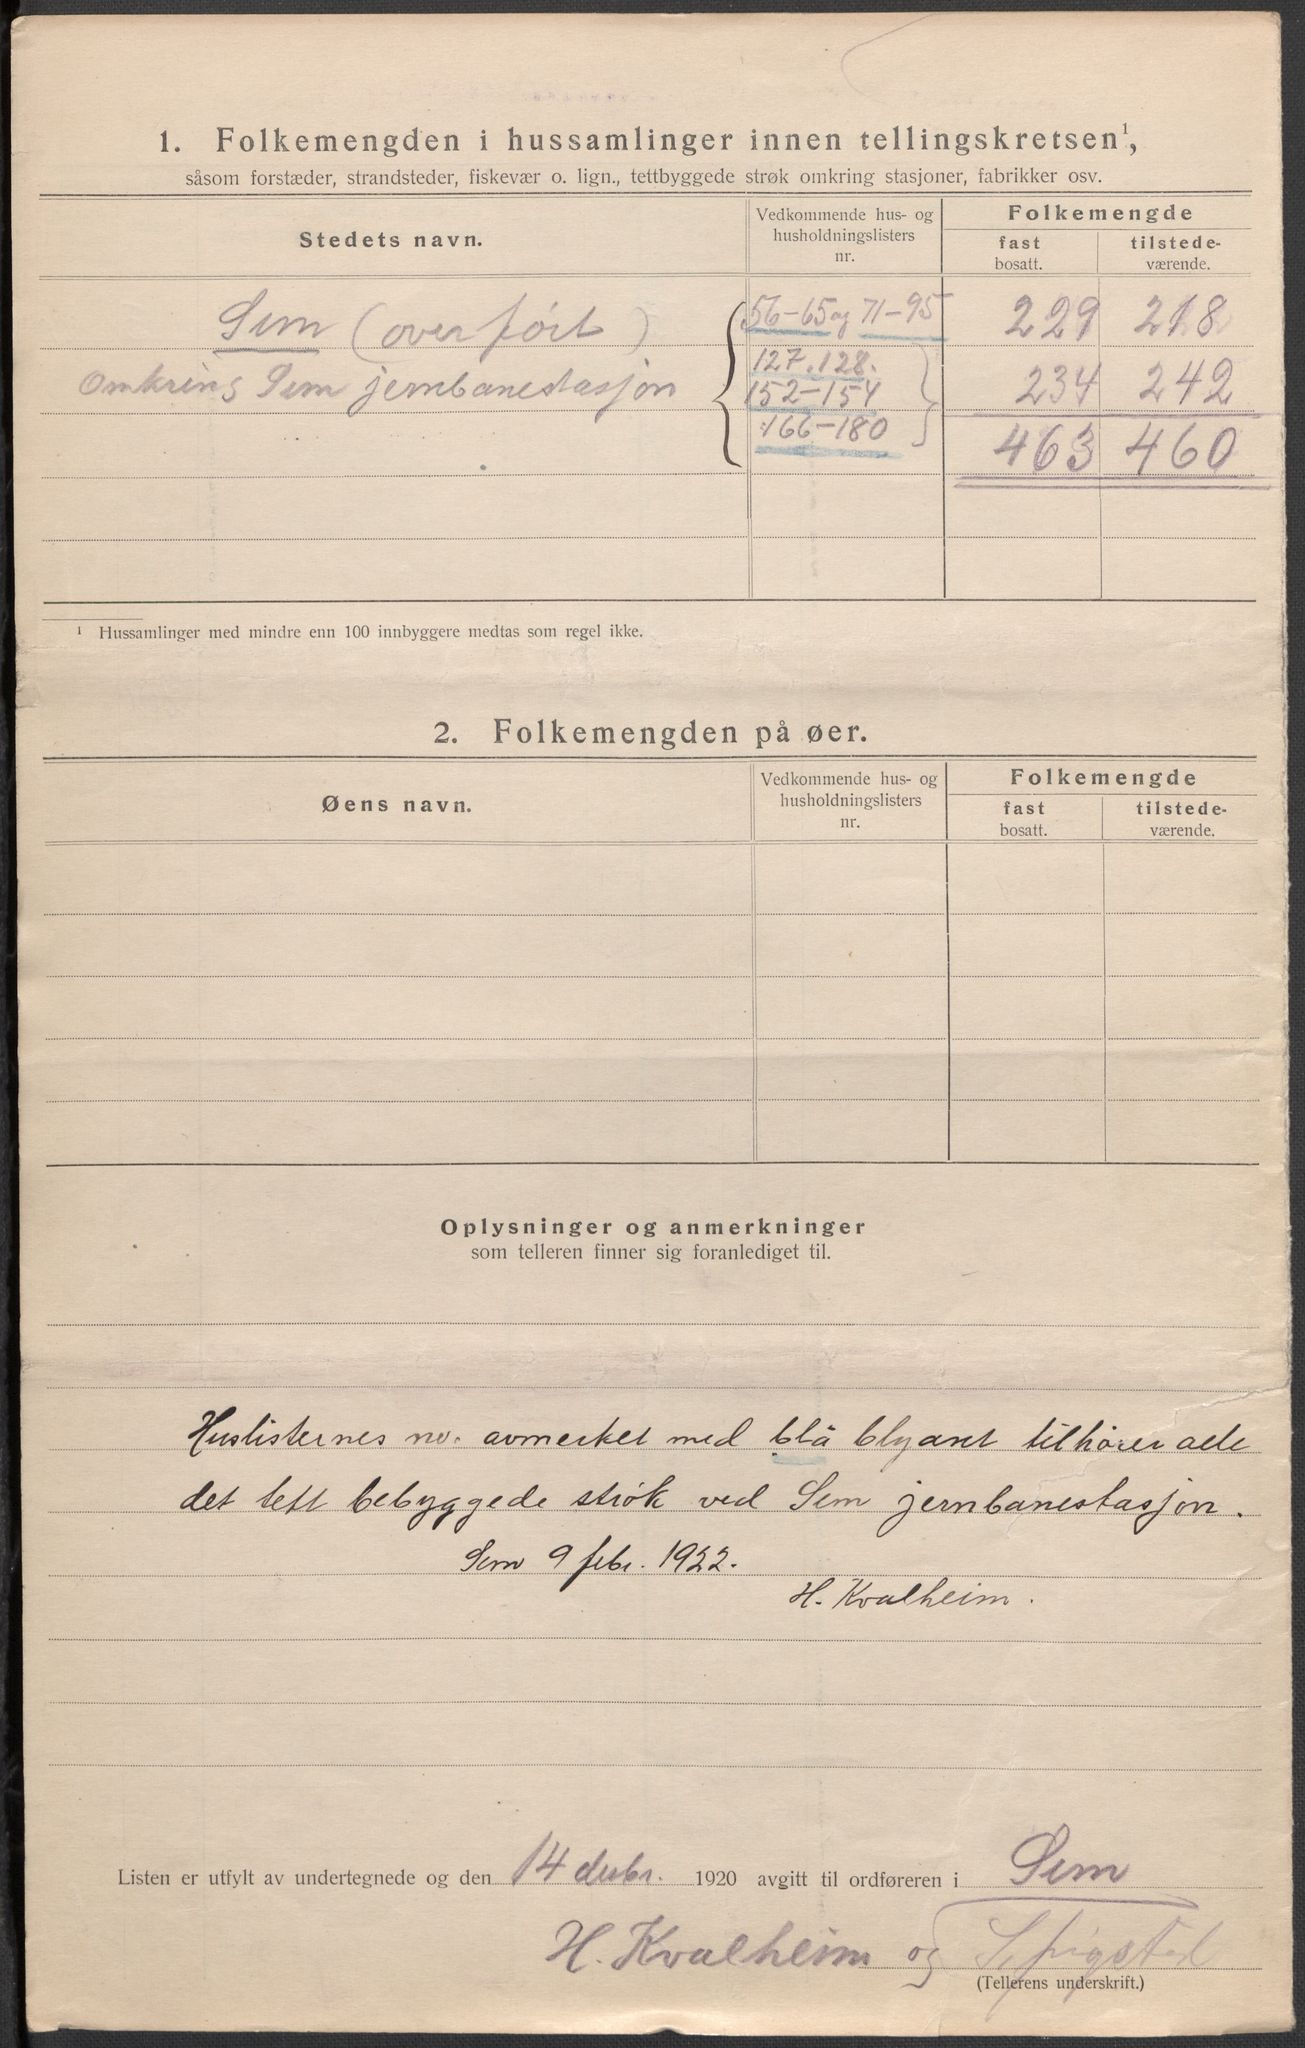 1. Folkemengden i hussamlinger innen tellingskretsen¹,
såsom forstæder, strandsteder, fiskevær o. lign., tettbyggede strøk omkring stasjoner, fabrikker osv.
Stedets navn.
Vedkommende hus- og
husholdningslisters
nr.
Folkemengde
fast
bosatt.
tilstede-
værende.
Sem (overført)
56–65 og 71–95
229
218
Omkring Sem jernbanestasjon
127. 128.
152–154
166–180
234
242
463
460
¹ Hussamlinger med mindre enn 100 innbyggere medtas som regel ikke.
2. Folkemengden på øer.
Øens navn.
Vedkommende hus- og
husholdningslisters
nr.
Folkemengde
fast
bosatt.
tilstede-
værende.
Oplysninger og anmerkninger
som telleren finner sig foranlediget til.
Huslisternes nr. avmerket med blå blyant tilhører alle
det tett bebyggede strøk ved Sem jernbanestasjon.
Sem 9 febr. 1922.
H. Kvalheim.
Listen er utfylt av undertegnede og den 14 desbr. 1920 avgitt til ordføreren i Sem
H. Kvalheim og
(Tellerens underskrift.)